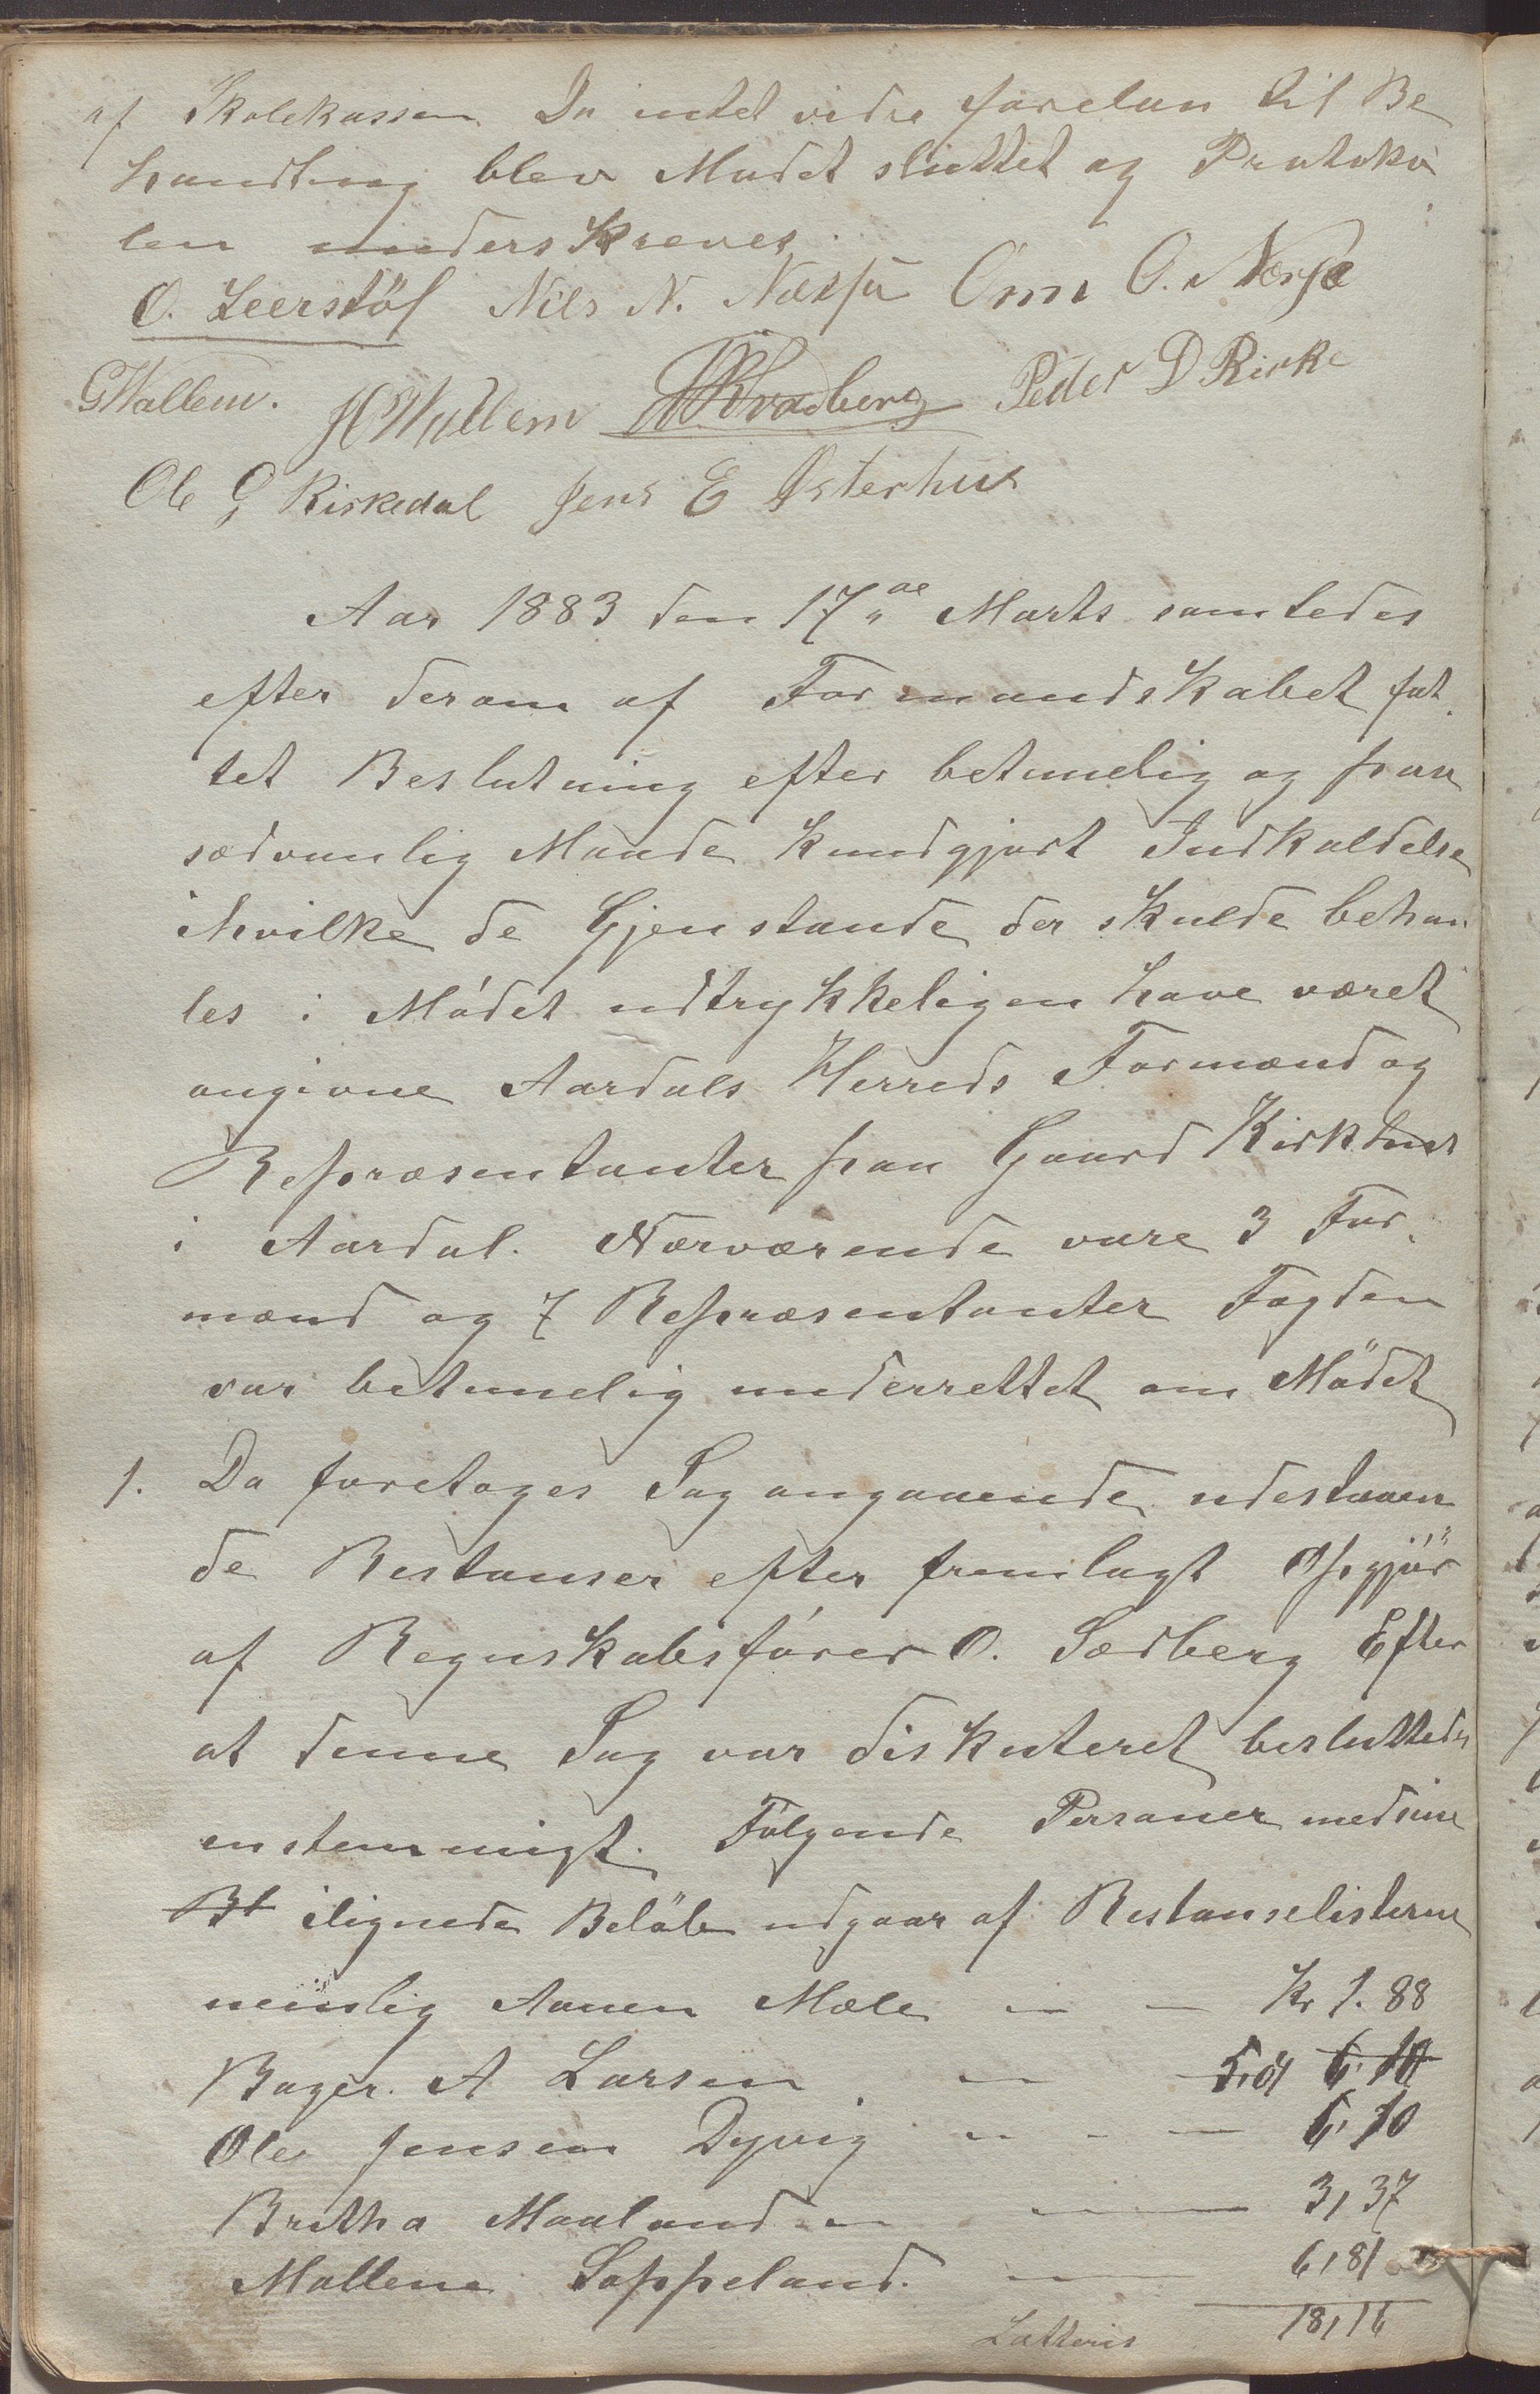 af Skolekassen Da intet vidre forelaa til Be
handling blev Mødet sluttet og Protoko
len underskreves.
O. Leerstöl Nils N. Næssa Omn O. Nessa
GWallem. HWallem Peder D Riske
Ole G Riskedal Jens E Østerhus
Aar 1883 den 17de Marts samledes
efter derom af Formandskabet fat
tet Beslutning efter betimelig og paa
sædvanlig Maade kundgjort Indkaldelse
ihvilke de Gjenstande der skulde behan
les i Mødet udtrykkeligen have været
angivne Aardals Herreds Formænd og
Repræsentanter paa Gaard Kirkhus
i Aardal. Nærværende vare 3 For
mænd og 7 Repræsentanter Fogden
var betimelig underrettet om Mödet
1. Da foretoges Sag angaaende udestaaen
de Restanser efter fremlagt Opgjör
af Regnskabsfører O. Sædberg Efter
at denne Sag var diskuteret besluttedes
enstemmigt. Følgende Personer med sine
Bl ilignede Belöb udgaar af Restanselisterne
nemlig Aanen Mæle — — Kr 1.88
Bager. A Larsen — — 5,01 6,10
Ole Jensen Dyvig — — — 6,10
Bretha Maaland — — 3,37
Mallene Soppeland. — 6,81
Latteris 18,16